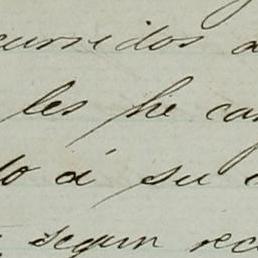 curridos a
les he ca
do á su
segun rec